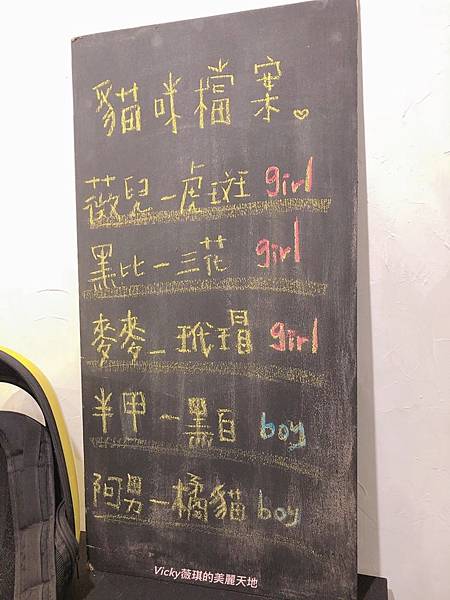 貓咪檔案
薇兒-虎斑 girl
黑比-三花 girl
麥麥-玳瑁 girl
半甲-黑白 boy
阿男-橘貓 boy
Vicky薇琪的美麗天地